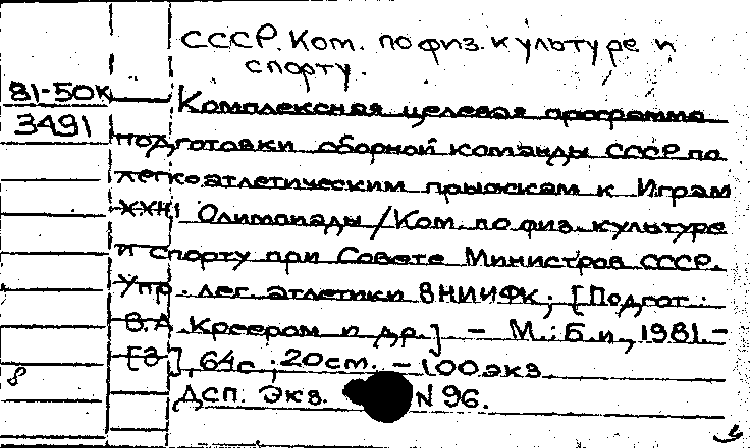 СССР. Ком. по физ. культуре и
спорту.
81-50к
3491
Комплексная целевая программа
подготовки сборной команды СССР по
легкоатлетическим прыжкам к Играм
Олимпиады / Ком. по физ. культуре
и спорту при Совете Министров СССР.
Упр. лег. атлетики ВНИИФК; [Подгот.:
В.А. Креером и др.] – М.: Б.и., 1981.–
[3], 64с.; 20см. – 100экз.
ДСП. Экз. N 96.
8